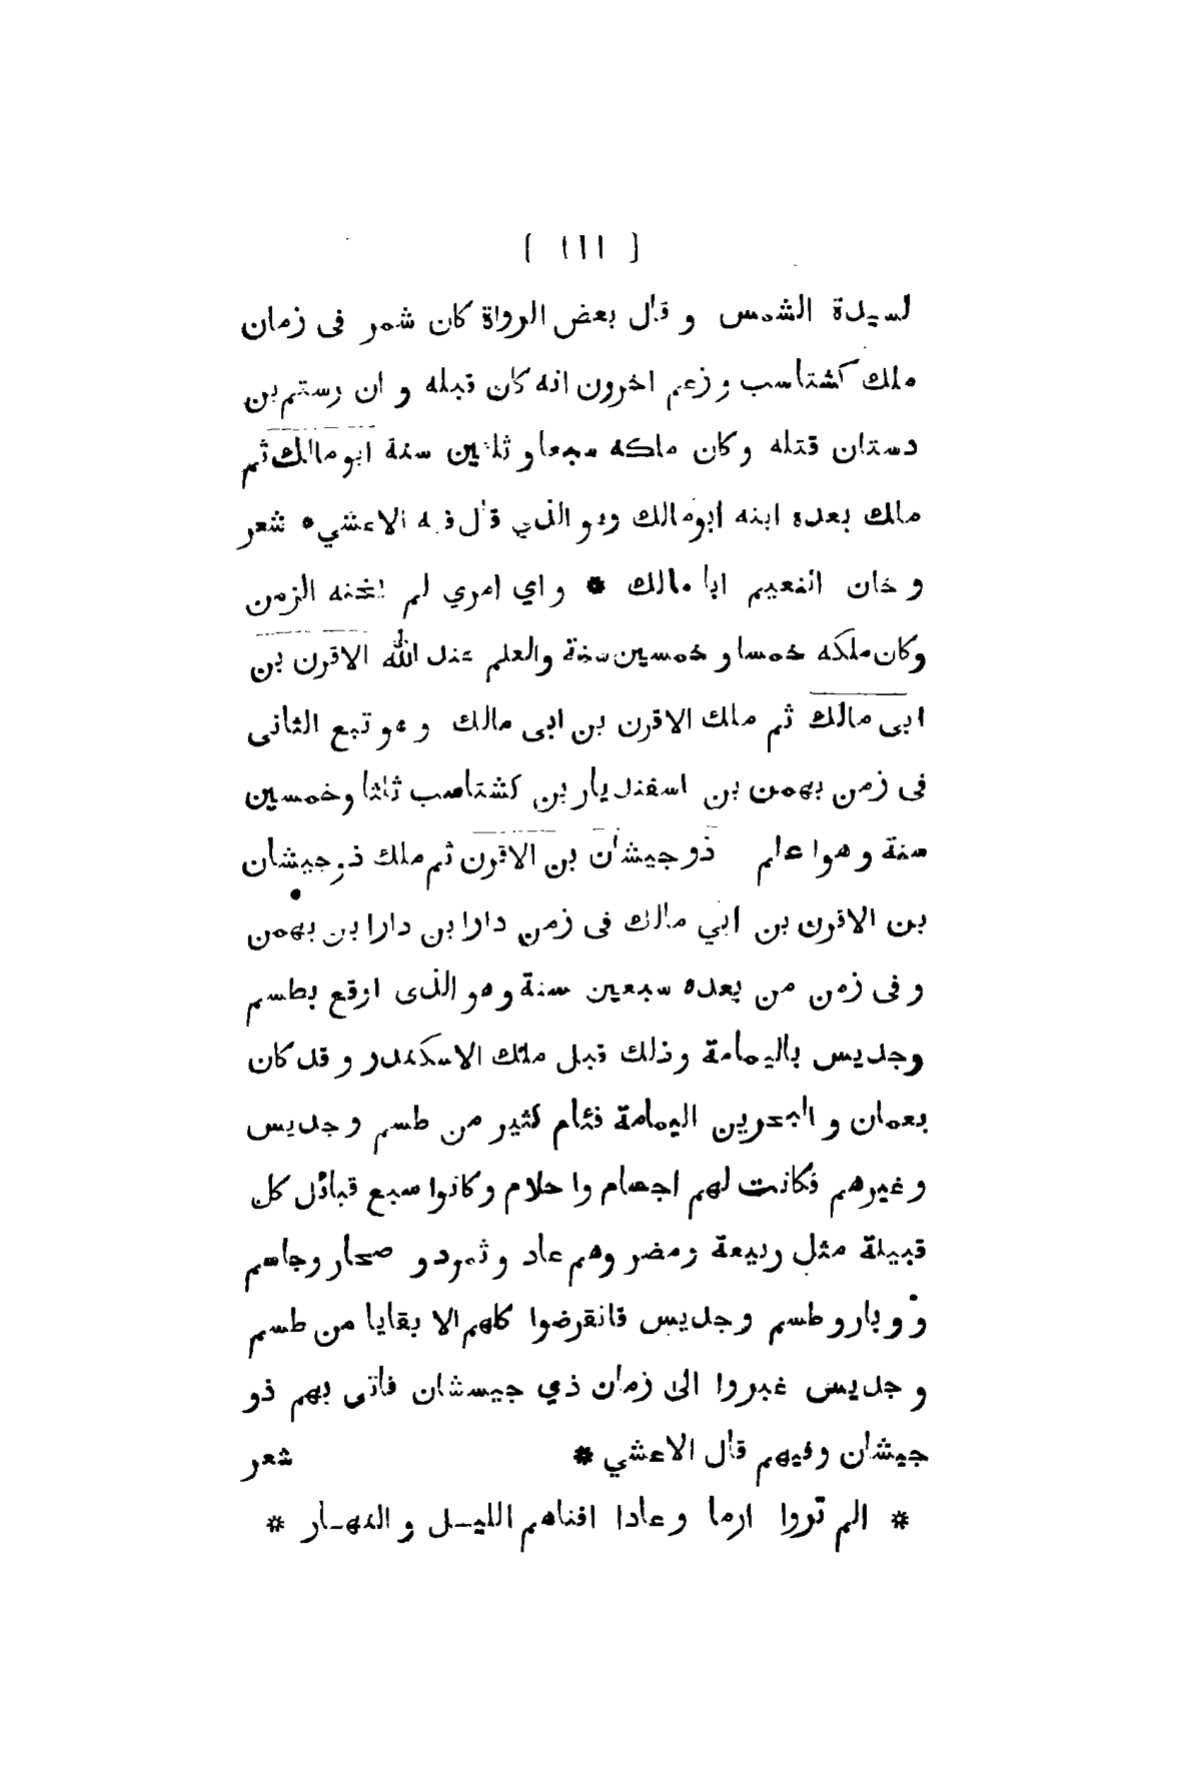 ( ١١١ )
لسيدة الشمس و قال بعض الرواة كان شمر فى زمان
ملك كشتاسب و زعم اخرون انه كان قبله و ان رستم بن
دستان قتله و كان ملكه سبعا و ثلاثين سنة ابو مالك ثم
مالك بعده ابنه ابو مالك وهو الذي قال فيه الاعشي * شعر
و خان النعيم ابا مالك * و اي امري لم يخنه الزمن
وكان ملكه خمسا و خمسين سنة والعلم عند الله الاقرن بن
ابى مالك ثم ملك الاقرن بن ابى مالك و هو تبع الثانى
فى زمن بهمن بن اسفنديار بن كشتاسب ثلثا و خمسين
سنة و هوا علم ذو جيشان بن الاقرن ثم ملك ذو جيشان
بن الاقرن بن ابي مالك فى زمن دارا بن دارا بن بهمن
و فى زمن من بعده سبعين سنة و هو الذى اوقع بطسم
وجديس باليمامة و ذلك قبل ملك الاسكندر و قد كان
بعمان و البحرين اليمامة فئام كثير من طسم و جديس
و غيرهم فكانت لهم اجسام وا حلام و كانوا سبع قبائل كل
قبيلة مثل ربيعة ومضر وهم عاد و ثمود و صحار وجاسم
و وبار و طسم و جديس فانقرضوا كلهم الا بقايا من طسم
و جديس غبروا الى زمان ذي جيسشان فاتى بهم ذو
جيشان وفيهم قال الاعشي * شعر
* الم تروا ارما و عادا افناهم الليـل و النهـار *